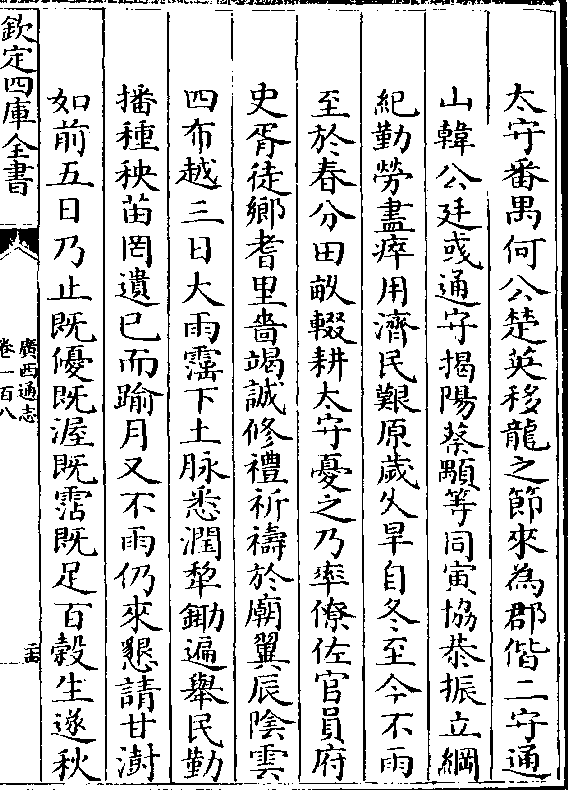 太守番禺何公楚英移龍之節來為郡偕二守通
山韓公廷彧通守揭陽蔡顒等同寅協恭振立綱
紀勤勞盡瘁用濟民艱原歲久旱自冬至今不雨
至於春分田畝輟耕太守憂之乃率僚佐官員府
史胥徒鄉耆里嗇竭誠修禮祈禱於廟翼辰陰雲
四布越三日大雨霑下土脉悉潤犂鋤遍舉民勤
播種秧苗罔遺已而踰月又不雨仍來懇請甘澍
如前五日乃止既優既渥既霑既足百穀生遂秋
欽定四庫全書
廣西通志
卷一百八